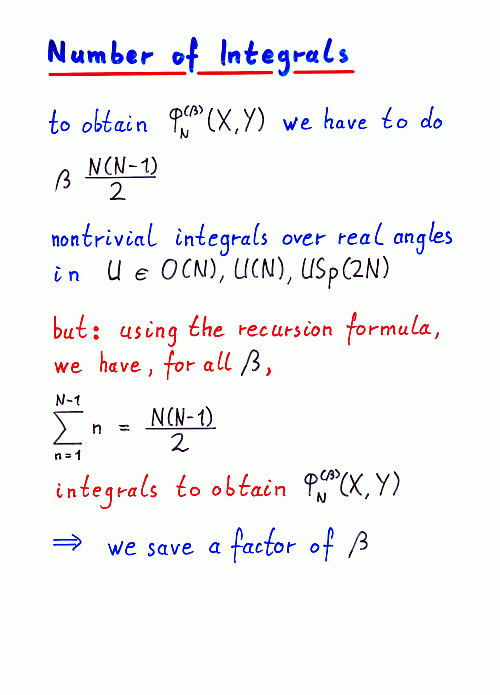 Number of Integrals
to obtain Φ_N^(β)(X,Y) we have to do
β N(N-1)/2
nontrivial integrals over real angles
in U ∈ O(N), U(N), USp(2N)
but: using the recursion formula,
we have, for all β,
∑_{n=1}^{N-1} n = N(N-1)/2
integrals to obtain Φ_N^(β)(X,Y)
⇒ we save a factor of β